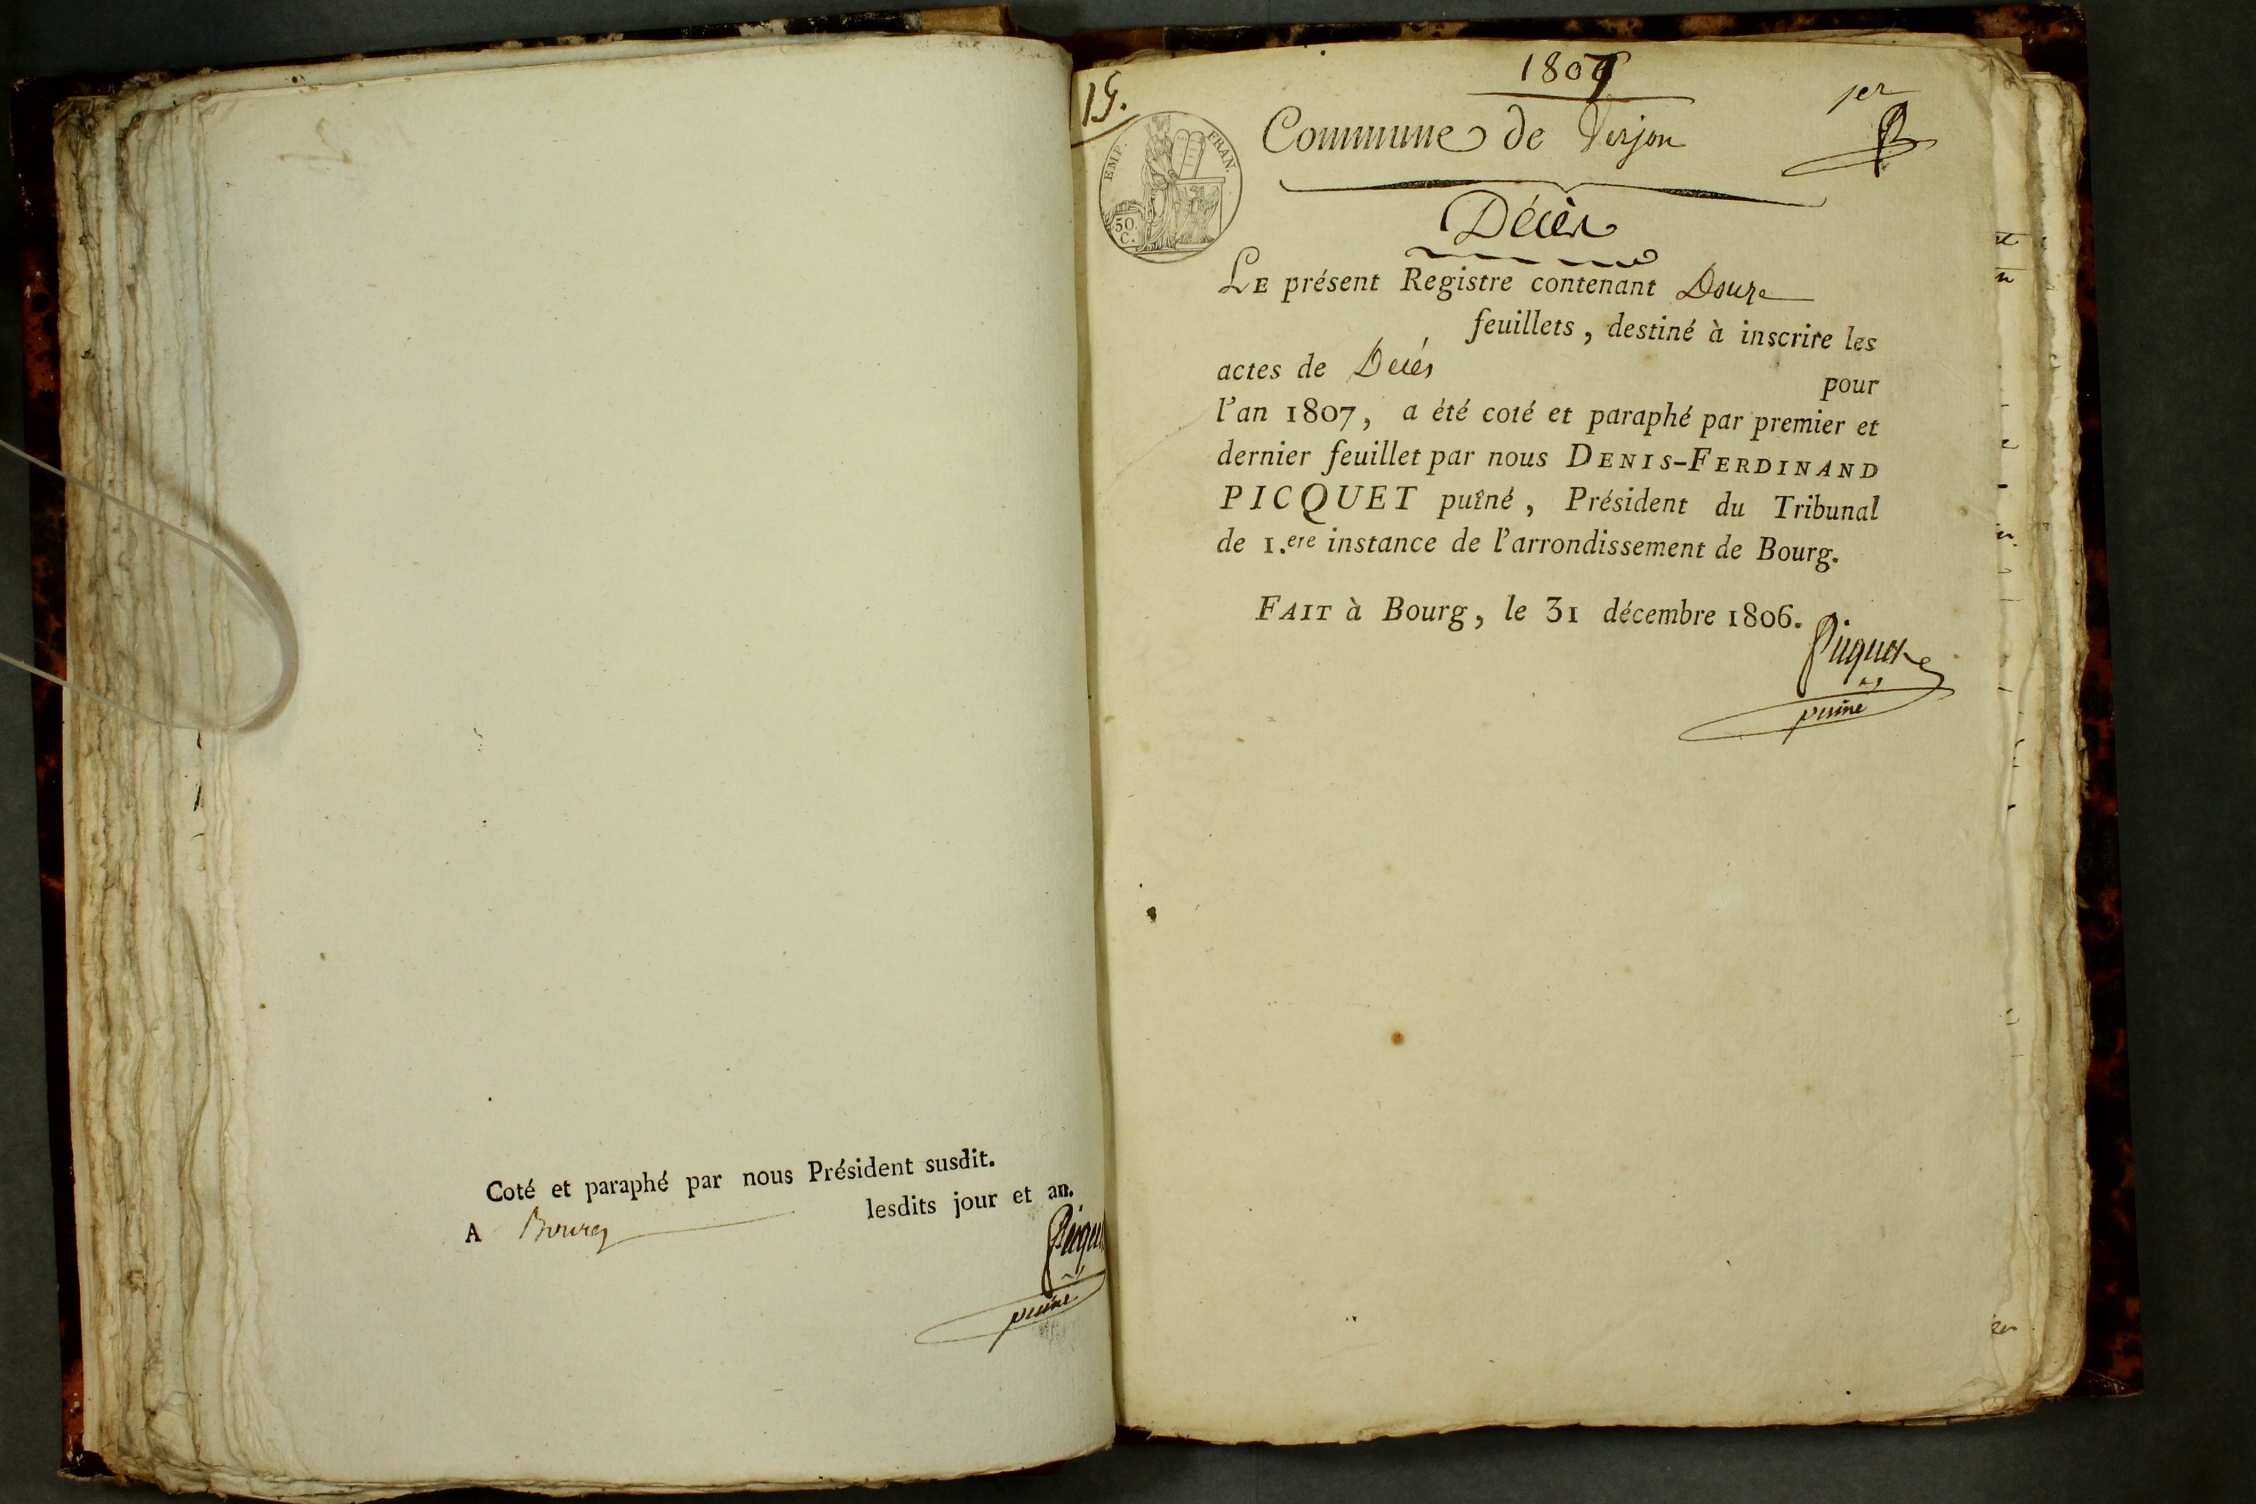 Coté et paraphé par nous Président susdit.
A Bourg lesdits jour et an.
Picquet
puiné
15.
1807
1er
EMP. FRAN.
50.
C.
Commune de Verjon
Décès
LE présent Registre contenant Douze
feuillets, destiné à inscrire les
actes de Décés pour
l'an 1807, a été coté et paraphé par premier et
dernier feuillet par nous DENIS-FERDINAND
PICQUET puîné, Président du Tribunal
de 1.ere instance de l'arrondissement de Bourg.
FAIT à Bourg, le 31 décembre 1806.
Picquet
puiné